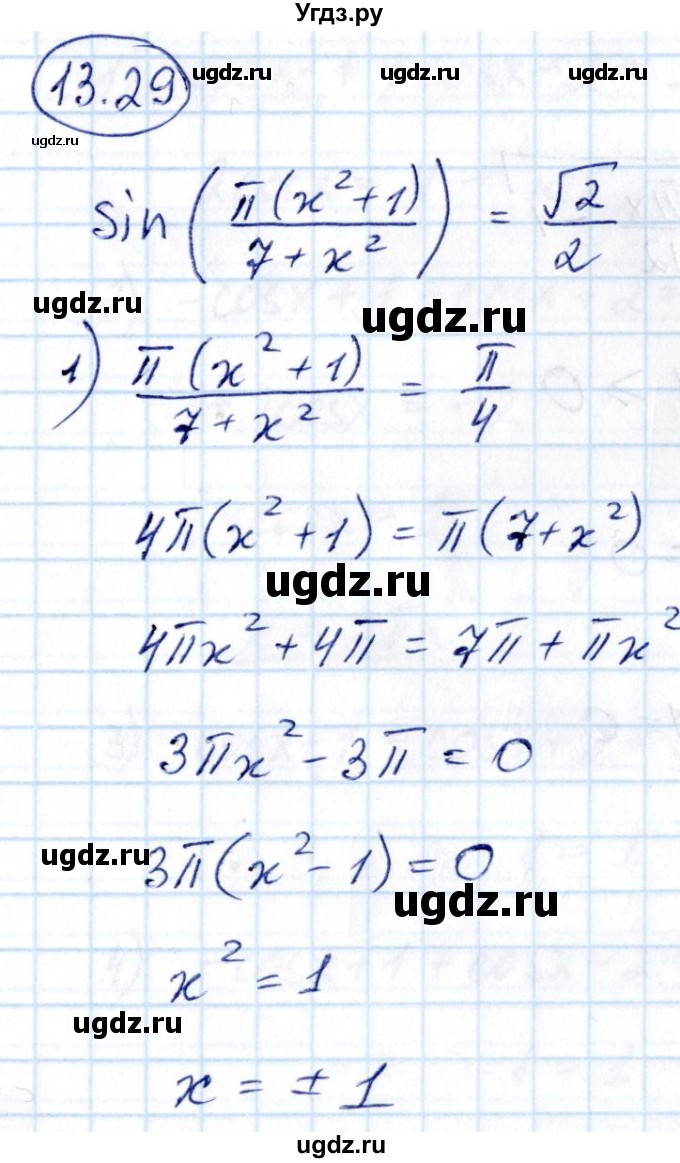 Угдз.ру
13.29
ugdz.ru ugdz.ru ugdz.ru
ugdz.ru
sin(π(x²+1)/(7+x²)) = √2/2
ugdz.ru ugdz.ru
1) π(x²+1)/(7+x²) = π/4
4π(x²+1) = π(7+x²)
ugdz.ru
4πx²+4π = 7π+πx²
3πx²-3π = 0
ugdz.ru
3π(x²-1) = 0
ugdz.ru
x² = 1
ugdz.ru
x = ±1
ugdz.ru